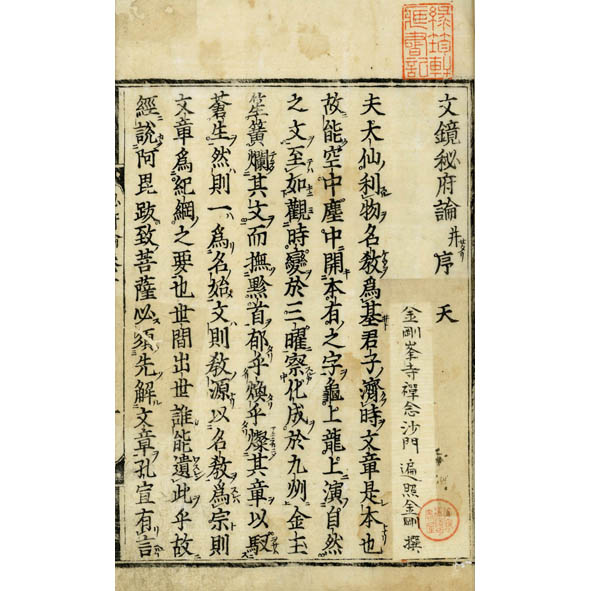 文鏡秘府論 并序 天
金剛峯寺禪念沙門 遍照金剛 撰
夫大仙利物名教爲基君子濟時文章是本也
故能空中塵中開本有之字龜上龍上演自然
之文至如觀時變於三曜察化成於九州金玉
笙簧爛其文而撫黔首郁乎煥乎燦其章以馭
蒼生然則一爲名始文則教源以名教爲宗則
文章爲紀綱之要也世間出世誰能遺此乎故
經說阿毘跋致菩薩必須先解文章孔宣有言